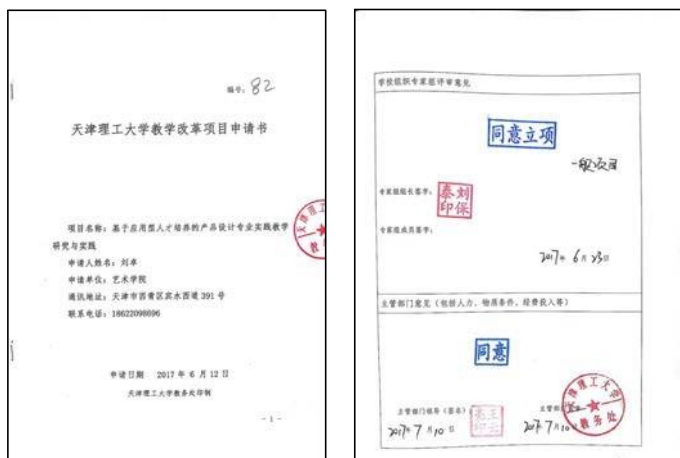 编号: 82
天津理工大学教学改革项目申请书
项目名称: 基于应用型人才培养的产品设计专业实践教学
研究与实践
申请人姓名: 刘卓
申请单位: 艺术学院
通讯地址: 天津市西青区宾水西道 391 号
联系电话: 18622098696
申请日期 2017 年 6 月 12 日
天津理工大学教务处印制
- 1 -
学校组织专家组评审意见
同意立项
一般项目
专家组组长签字:
刘保
泰印
专家组成员签字:
2017年 6 月 23日
主管部门意见 (包括人力、物质条件、经费投入等)
同意
主管部门领导 (签名):
2017年 7 月 10 日
2017年 7 月 10
天津理工大学
教务处